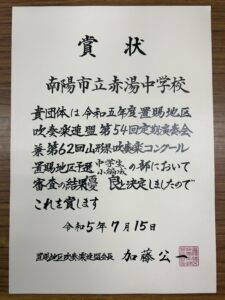 賞状
南陽市立赤湯中学校
貴団体は令和五年度置賜地区
吹奏楽連盟第54回定期演奏会
兼第62回山形県吹奏楽コンクール
置賜地区予選中学生小編成の部において
審査の結果優良と決定しましたので
これを賞します
令和5年7月15日
置賜地区吹奏楽連盟会長 加藤公一